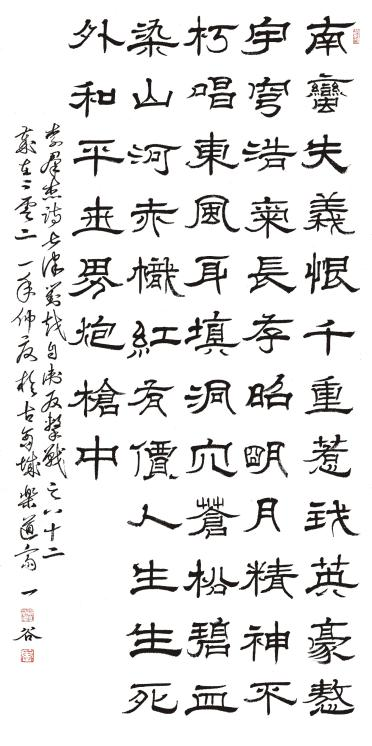 南蠻失義恨千重惹我英豪
宇穹浩氣長存昭明月精神不
朽唱東風耳填洞穴蒼松碧血
染山河赤幟紅有價人生生死
外和平世界炮槍中
詩七律對越自衛反擊戰之八十二
歲在二零二一年仲夏於古城樂道齋 一谷